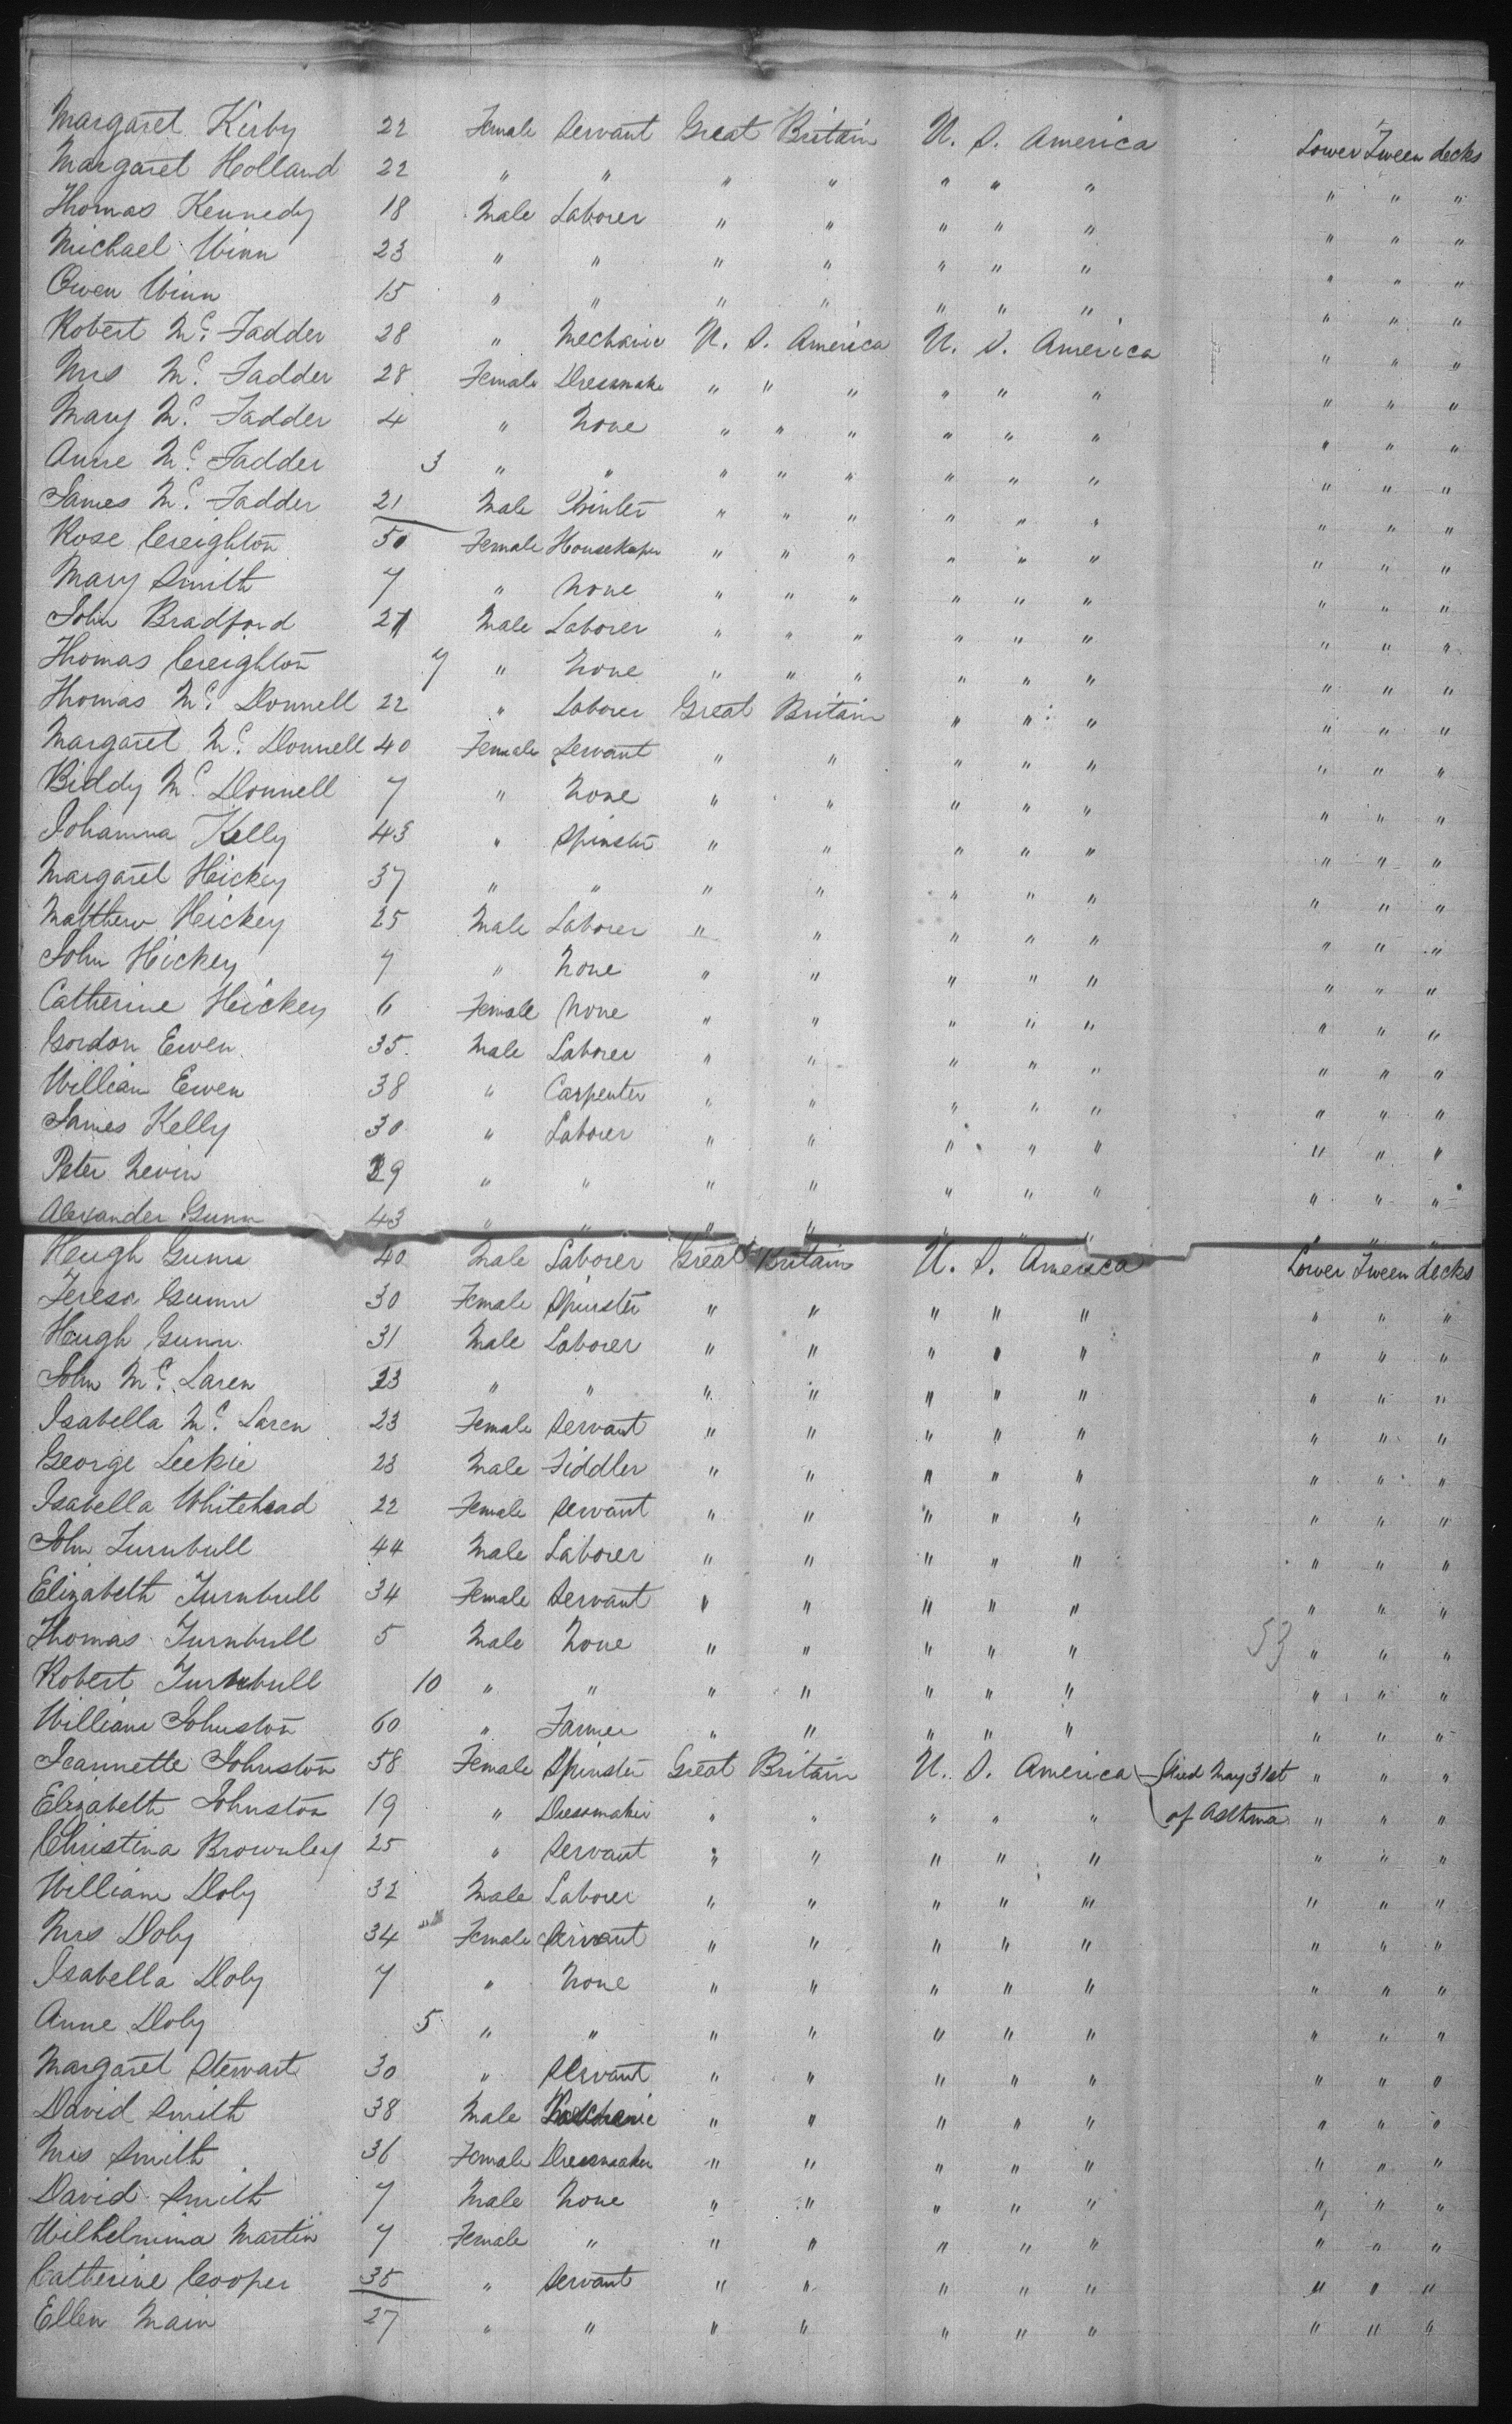 Margaret Kirby 22 Female Servant Great Britain U. S. America Lower Tween decks
Margaret Holland 22 " " " " " " " " " "
Thomas Kennedy 18 Male Laborer " " " " " " " "
Michael Winn 23 " " " " " " " " " "
Owen Winn 15 " " " " " " " " " "
Robert Mc. Fadder 28 " Mechanic U. S. America U. S. America " " "
Mrs Mc. Fadder 28 Female Dressmake " " " " " " " " "
Mary Mc. Fadder 4 " None " " " " " " " " "
Anne Mc. Fadder 3 " " " " " " " " " " "
James Mc. Fadder 21 Male Printer " " " " " " " " "
Rose Creighton 50 Female Housekeper " " " " " " " " "
Mary Smith 7 " None " " " " " " " " "
John Bradford 21 Male Laborer " " " " " " " " "
Thomas Creighton 7 " None " " " " " " " " "
Thomas Mc. Donnell 22 " Laborer Great Britain " " " " " "
Margaret Mc. Donnell 40 Female Servant " " " " " " " "
Biddy Mc. Donnell 7 " None " " " " " " " "
Johanna Kelly 43 " Spinster " " " " " " " "
Margaret Hickey 37 " " " " " " " " " "
Matthew Hickey 25 Male Laborer " " " " " " " "
John Hickey 7 " None " " " " " " " "
Catherine Hickey 6 Female None " " " " " " " "
Gordon Ewen 35 Male Laborer " " " " " " " "
William Ewen 38 " Carpenter " " " " " " " "
James Kelly 30 " Laborer " " " " " " " "
Peter Nevin 29 " " " " " " " " " "
Alexander Gunn 43 " " " " " " " " "
Hugh Gunn 40 Male Laborer Great Britain U. S. America Lower Tween decks
Teresa Gunn 30 Female Spinster " " " " " " " "
Hugh Gunn 31 Male Laborer " " " " " " " "
John Mc. Laren 23 " " " " " " " " " "
Isabella Mc. Laren 23 Female Servant " " " " " " " "
George Leckie 23 Male Fiddler " " " " " " " "
Isabella Whitehead 22 Female Servant " " " " " " " "
John Turnbull 44 Male Laborer " " " " " " " "
Elizabeth Turnbull 34 Female Servant " " " " " " " "
Thomas Turnbull 5 Male None " " " " " 53 " " "
Robert Turnbull 10 " " " " " " " " " "
William Johnston 60 " Farmer " " " " " " " "
Jeannette Johnston 58 Female Spinster Great Britain U. S. America Died May 31st " " "
Elizabeth Johnston 19 " Dressmaker " " " " " of Asthma " " "
Christina Brownley 25 " Servant " " " " " " " "
William Doby 32 Male Laborer " " " " " " " "
Mrs Doby 34 Female Servant " " " " " " " "
Isabella Doby 7 " None " " " " " " " "
Anne Doby 5 " " " " " " " " " "
Margaret Stewart 30 " Servant " " " " " " " "
David Smith 38 Male Mechanic " " " " " " " "
Mrs Smith 36 Female Dressmaker " " " " " " " "
David Smith 7 Male None " " " " " " " "
Wilhelmina Martin 7 Female " " " " " " " " "
Catherine Cooper 35 " Servant " " " " " " " "
Ellen Main 27 " " " " " " " " " "